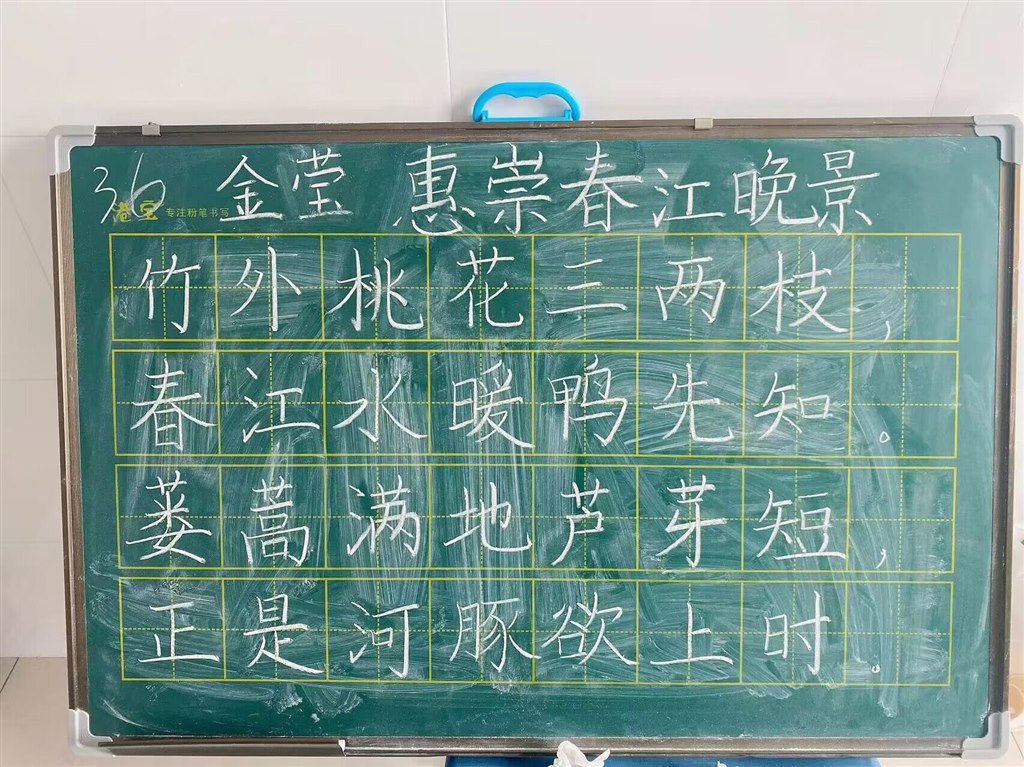 36 金莹 惠崇春江晚景
专注粉笔书写
竹外桃花三两枝，
春江水暖鸭先知。
蒌蒿满地芦芽短，
正是河豚欲上时。